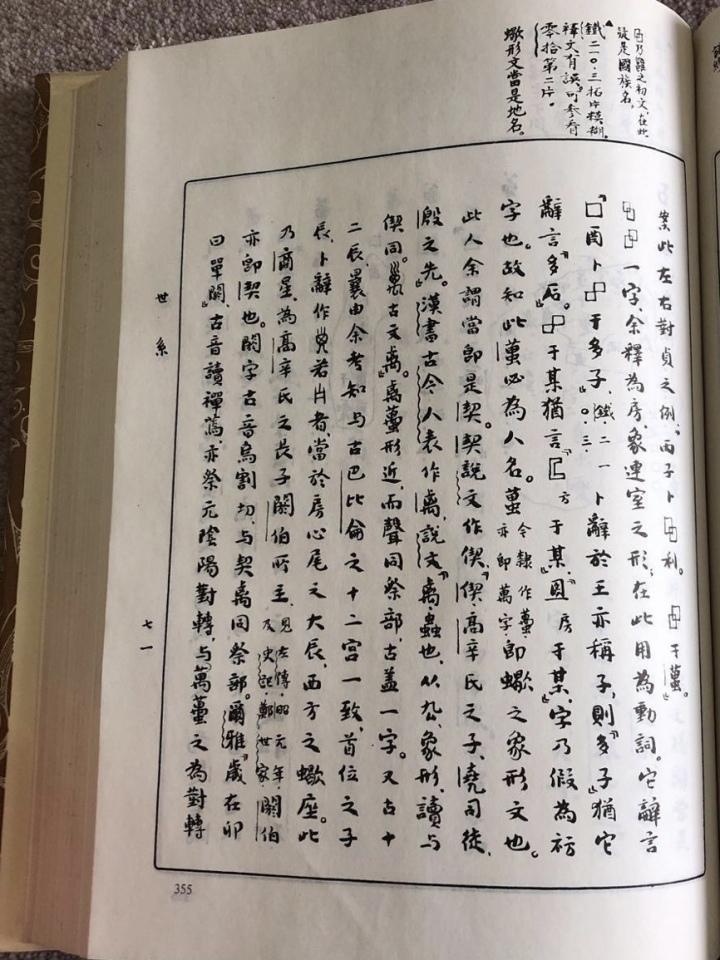 乃雝之初文,在此
疑是國族名。
鐵二一〇.三拓片模糊,
釋文有誤,可參看
零拾第二片。
蠍形文當是地名。
案此左右對貞之例,丙子卜𠱠利。于𧍙。
一字,余釋為房,象連室之形;在此用為動詞。它辭言
『囗酉卜于多子』,鐵二一〇.三.卜辭於王亦稱子,則『多子』猶它
辭言『多后』。于某猶言『匚方于某』,『囩房于某』,字乃假為祊
字也。故知此𧍙必為人名。𧍙今隸作蠆,亦即萬字,即蠍之象形文也。
此人余謂當即是契。契說文作偰,『偰,高辛氏之子,堯司徒,
殷之先。』漢書古今人表作禼,說文『禼,蟲也,从厹,象形,讀与
偰同。古文禼。』禼蠆形近,而聲同祭部,古蓋一字。又古十
二辰,曩由余考知与古巴比侖之十二宫一致,首位之子
辰,卜辭作若者,當於房心尾之大辰,西方之蠍座。此
乃商星,為高辛氏之長子閼伯所主,見左傳昭元年及史記鄭世家閼伯
亦即契也。閼字古音烏割切,与契禼同祭部。爾雅『歲在卯
曰單閼』,古音讀禪焉,亦祭元陰陽對轉,与萬蠆之為對轉
世系
七一
355